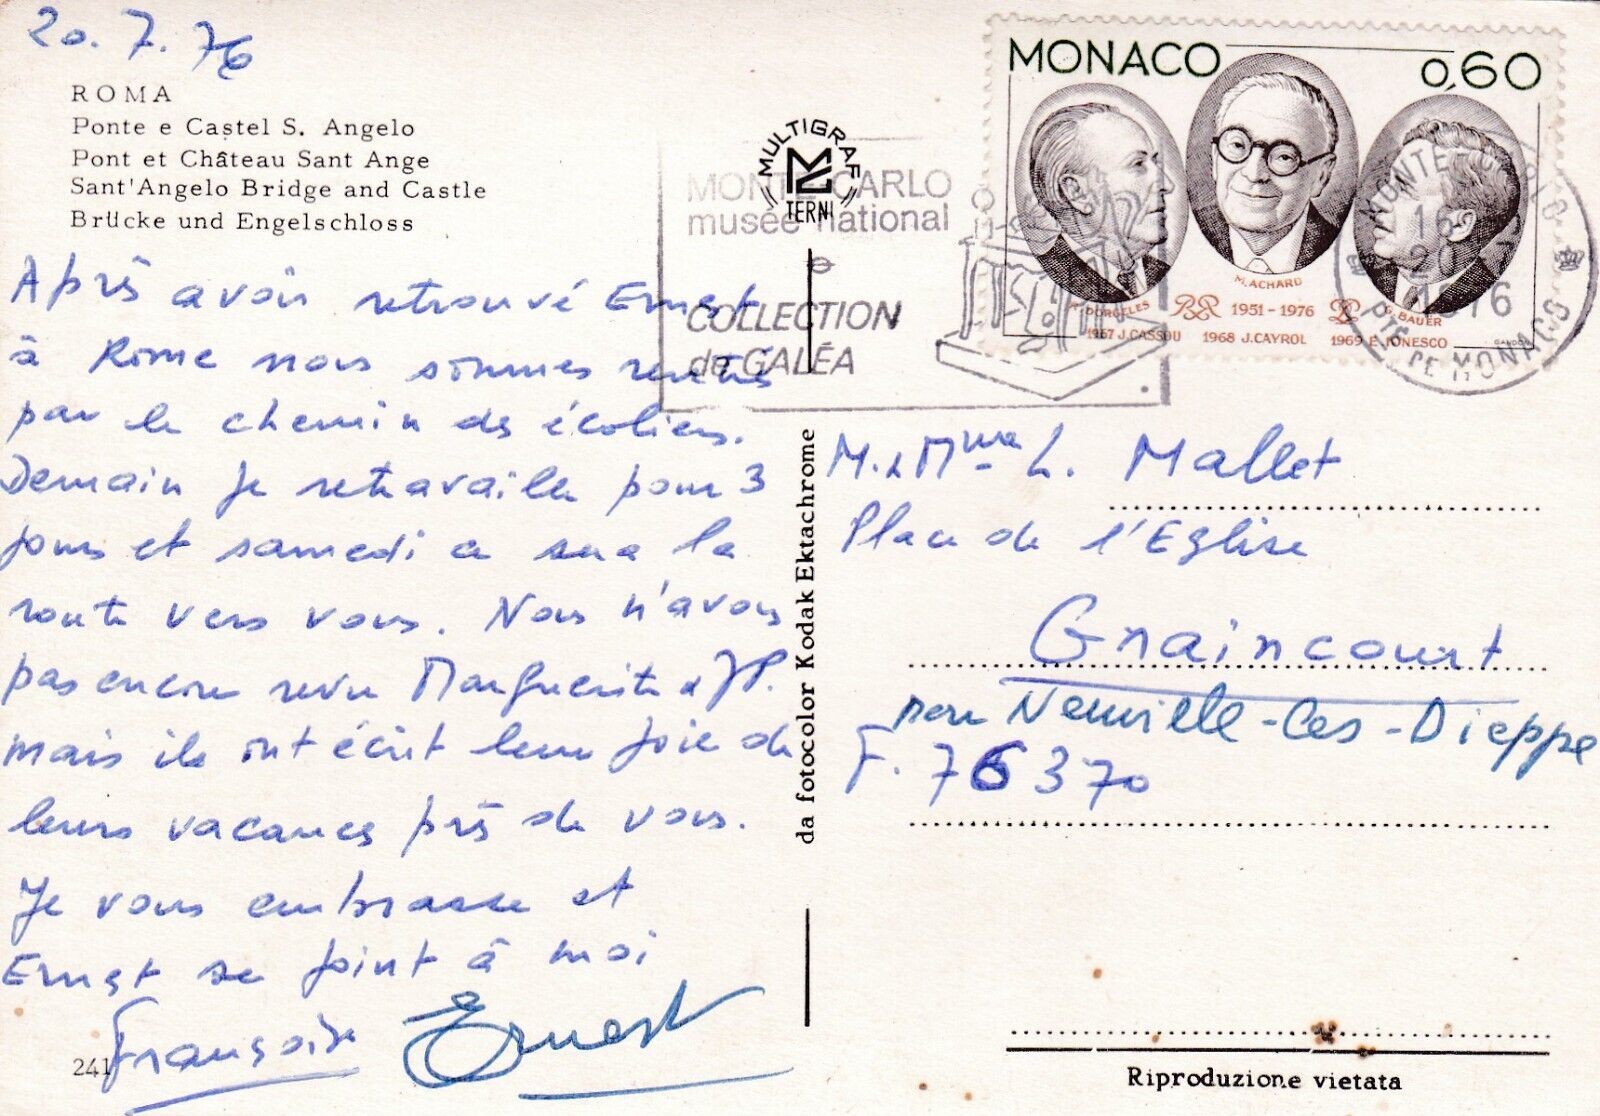 20.7.76
ROMA
Ponte e Castel S. Angelo
Pont et Château Sant Ange
Sant'Angelo Bridge and Castle
Brücke und Engelschloss
Après avoir retrouvé Ernest
à Rome nous sommes rentrés
par le chemin des écoliers.
Demain je retravaille pour 3
jours et samedi ce sera la
route vers vous. Nous n'avons
pas encore revu Marguerite & JP.
mais ils ont écrit leur joie de
leurs vacances près de vous.
Je vous embrasse et
Ernest se joint à moi
Françoise Ernest
241
MULTIGRAF
TERNI
MONTE-CARLO
musée national
COLLECTION
de GALÉA
da fotocolor Kodak Ektachrome
MONACO 0,60
M. ACHARD
R. DORGELES 1951-1976 G. BAUER
1967 J. CASSOU 1968 J. CAYROL 1969 E. IONESCO
GANDON
MONTE-CARLO
16
20
1976
Pté DE MONACO
M. & Mme L. Mallet
Place de l'Eglise
Graincourt
par Neuville-Les-Dieppe
F. 76370
Riproduzione vietata